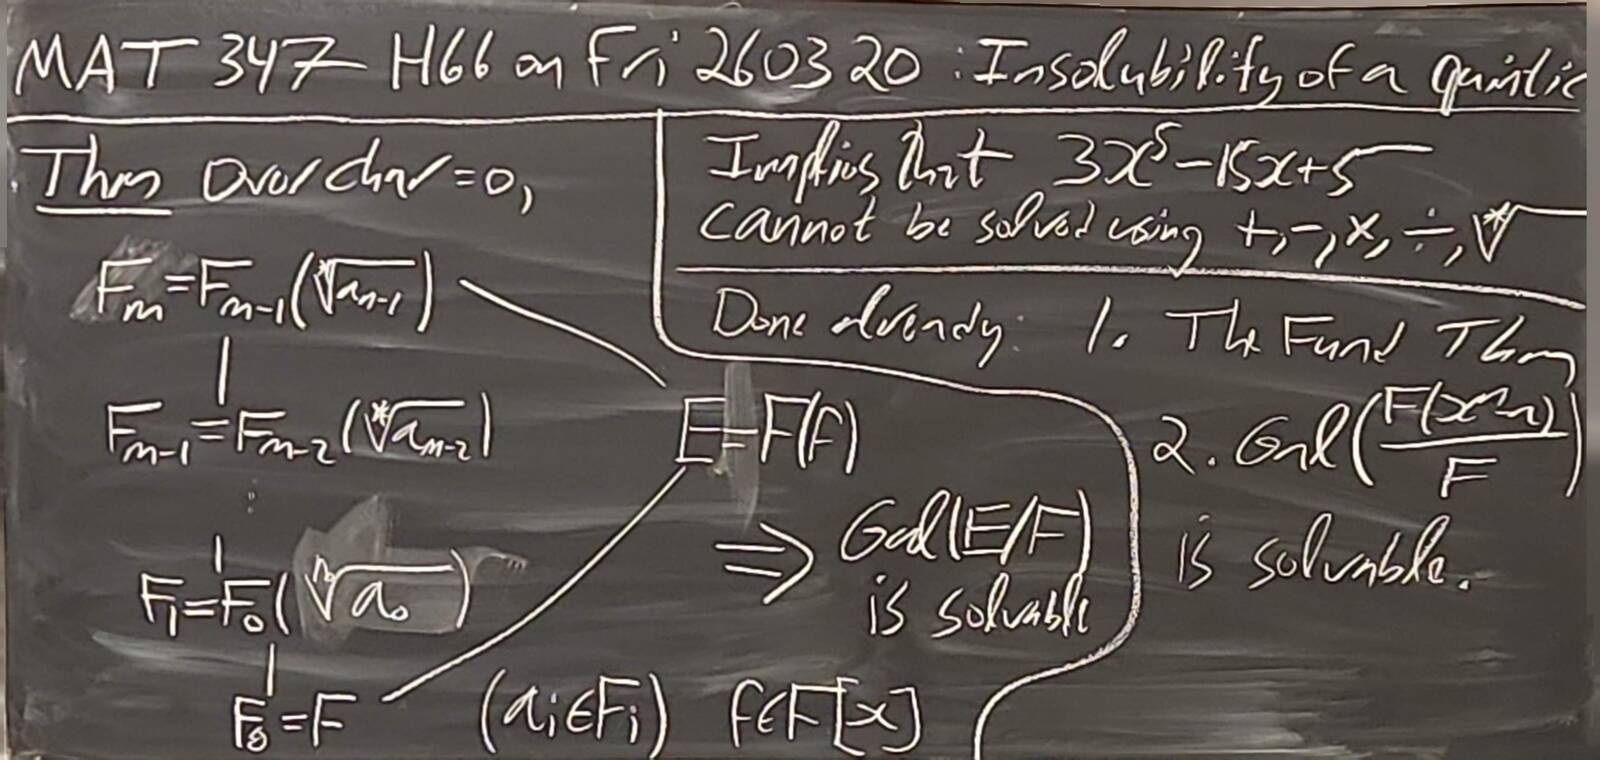 MAT 347 H66 on Fri 260320: Insolubility of a quintic
Thm Over char=0,
F_m=F_{m-1}(\sqrt[*]{a_{m-1}})
F_{m-1}=F_{m-2}(\sqrt[*]{a_{m-2}})
⋮
F_1=F_0(\sqrt[n]{a_0})
F_0=F
E=F(f)
⇒ Gal(E/F)
is solvable
(a_i∈F_i) f∈F[x]
Implies that 3x^5-15x+5
cannot be solved using +,-,×,÷,\sqrt[*]{}
Done already: 1. The Fund Thm
2. Gal(F(x^n-a)/F)
is solvable.